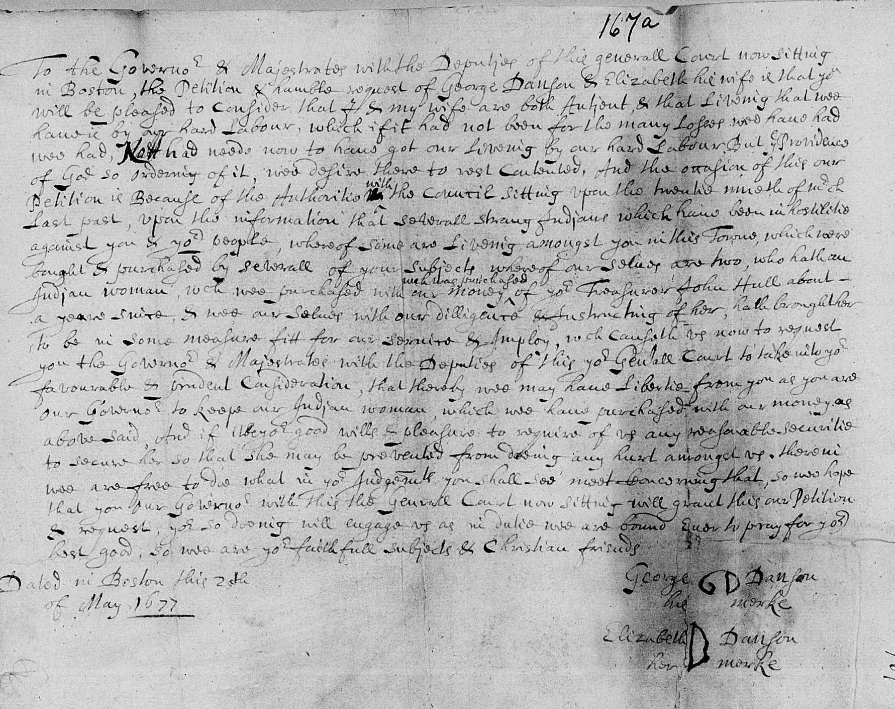 167a
To the Governor & Majestrates with the Deputies of this generall Court now sitting
in Boston, the Petition & humble request of George Danson & Elizabeth his wife is that you
will be pleased to Consider that I & my wife are both Antient, & that Liveing that wee
have is by our hard Labour, which if it had not been for the many Losses wee have had
wee had, Not had neede now to have got our Liveing by our hard Labour, But ye Providence
of God so ordering of it, wee desire there to rest Contented, And the occasion of this our
Petition is Because of the Authoritie with the Council sitting upon the twentie nineth of
Last past, upon the information that severall strang Indians which have been in hostilitie
against you & yor people, whereof some are Liveing amongst you in this Towne, which were
bought & purchased by severall of your subjects, whereof our selves are two, who hath an
Indian woman, wch wee purchased with our money, wch was purchased of yor Treasurer John Hull about
a yeare since, & wee our selves with our dilligence & Instructing of her, hath brought her
to be in some measure fitt for our service & Imploy, wch Causeth us now to request
you the Governor & Majestrates with the Deputies of this yor Genrall Court to take into yor
favourable & prudent Consideration, that thereby wee may have Libertie from you as you are
our Governor to keepe our Indian woman, which wee have purchased with our money as
above said, And if it yor good wills & pleasure to require of us any reasonable securitie
to secure her so that she may be prevented from doeing any hurt amongst us, therein
wee are free to doe what in yor Judgemts you shall see meet Concerning that, so wee hope
that you our Governor with this the Generall Court now sitting will grant this our Petition
& request, yor so doeing will engage us as in dutie wee are bound Ever to pray for yor
best good, so wee are yor faithfull subjects & Christian friends
Dated in Boston this
of May 1677
George GD Danson
his merke
Elizabeth D Danson
her merke